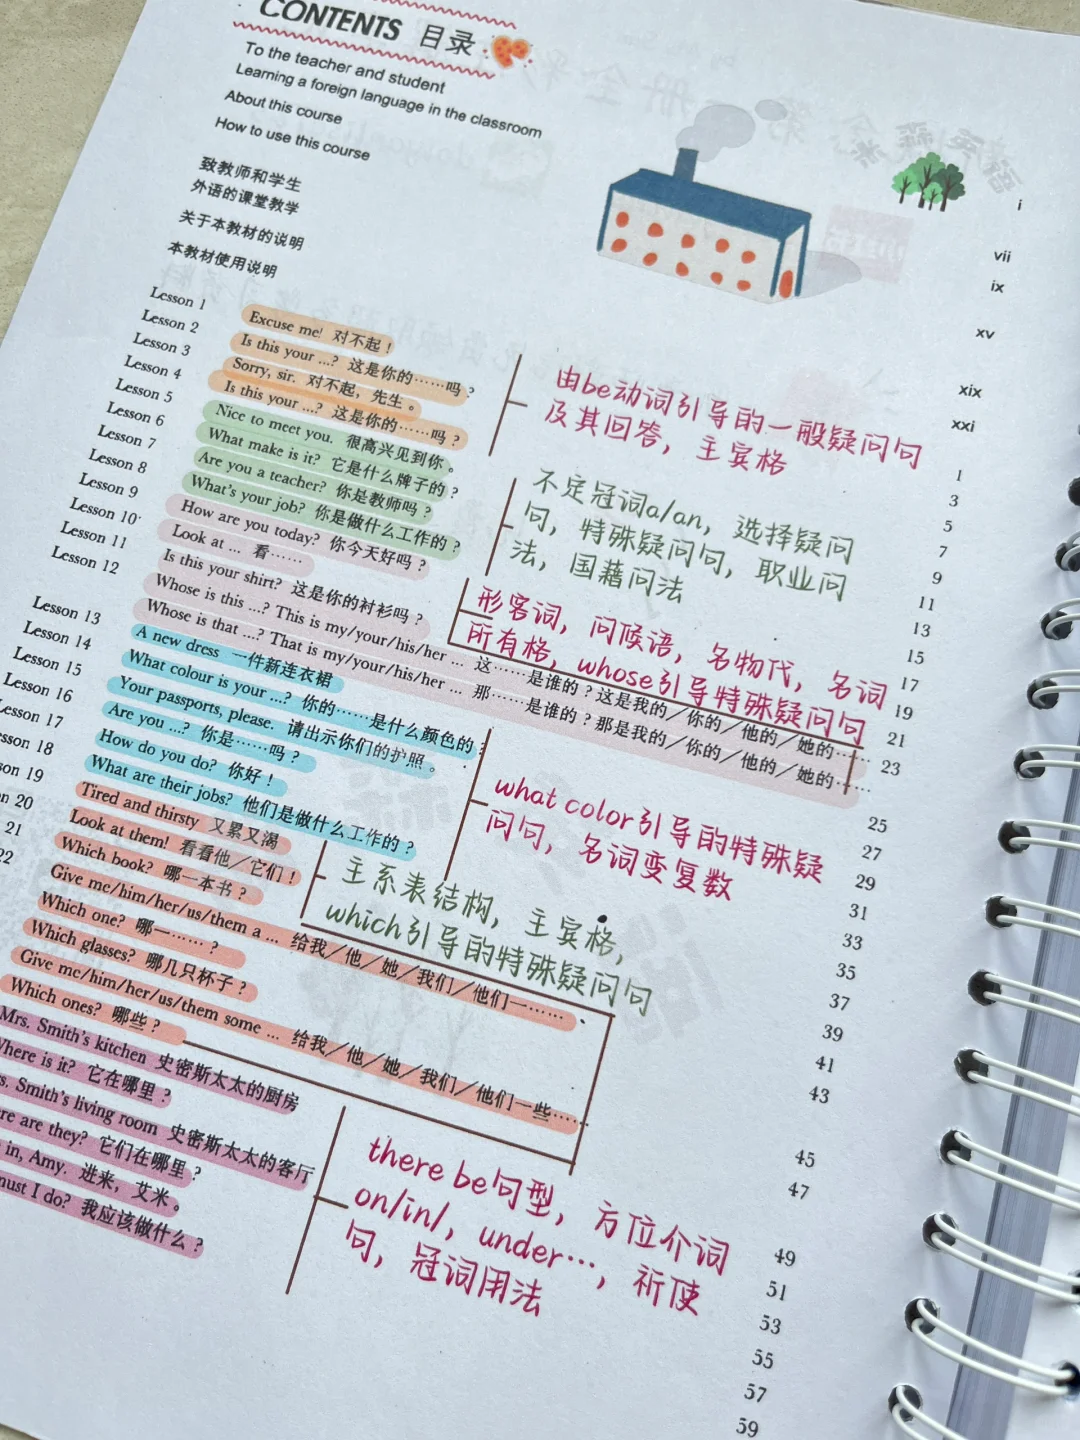 CONTENTS 目录
To the teacher and student
Learning a foreign language in the classroom
About this course
How to use this course
致教师和学生 i
外语的课堂教学 vii
关于本教材的说明 ix
本教材使用说明 xv
xix
xxi
Lesson 1 Excuse me! 对不起！
Lesson 2 Is this your ...? 这是你的……吗？
Lesson 3 Sorry, sir. 对不起，先生。
Lesson 4 Is this your ...? 这是你的……吗？
Lesson 5 Nice to meet you. 很高兴见到你。
Lesson 6 What make is it? 它是什么牌子的？
Lesson 7 Are you a teacher? 你是教师吗？
Lesson 8 What's your job? 你是做什么工作的？
Lesson 9 How are you today? 你今天好吗？
Lesson 10 Look at ... 看……
Lesson 11 Is this your shirt? 这是你的衬衫吗？
Lesson 12 Whose is this ...? This is my/your/his/her ... 这……是谁的？这是我的／你的／他的／她的……
Whose is that ...? That is my/your/his/her ... 那……是谁的？那是我的／你的／他的／她的……
Lesson 13 A new dress 一件新连衣裙
Lesson 14 What colour is your ...? 你的……是什么颜色的？
Lesson 15 Your passports, please. 请出示你们的护照。
Lesson 16 Are you ...? 你是……吗？
esson 17 How do you do? 你好！
sson 18 What are their jobs? 他们是做什么工作的？
on 19 Tired and thirsty 又累又渴
n 20 Look at them! 看看他／它们！
21 Which book? 哪一本书？
22 Give me/him/her/us/them a ... 给我／他／她／我们／他们一……
Which one? 哪一……？
Which glasses? 哪几只杯子？
Give me/him/her/us/them some ... 给我／他／她／我们／他们一些……
Which ones? 哪些？
Mrs. Smith's kitchen 史密斯太太的厨房
here is it? 它在哪里？
s. Smith's living room 史密斯太太的客厅
re are they? 它们在哪里？
in, Amy. 进来，艾米。
must I do? 我应该做什么？
由be动词引导的一般疑问句
及其回答，主宾格
不定冠词a/an，选择疑问
句，特殊疑问句，职业问
法，国藉问法
形客词，问候语，名物代，名词
所有格，whose引导特殊疑问句
what color引导的特殊疑
问句，名词变复数
主系表结构，主宾格，
which引导的特殊疑问句
there be句型，方位介词
on/in/，under…，祈使
句，冠词用法
1
3
5
7
9
11
13
15
17
19
21
23
25
27
29
31
33
35
37
39
41
43
45
47
49
51
53
55
57
59